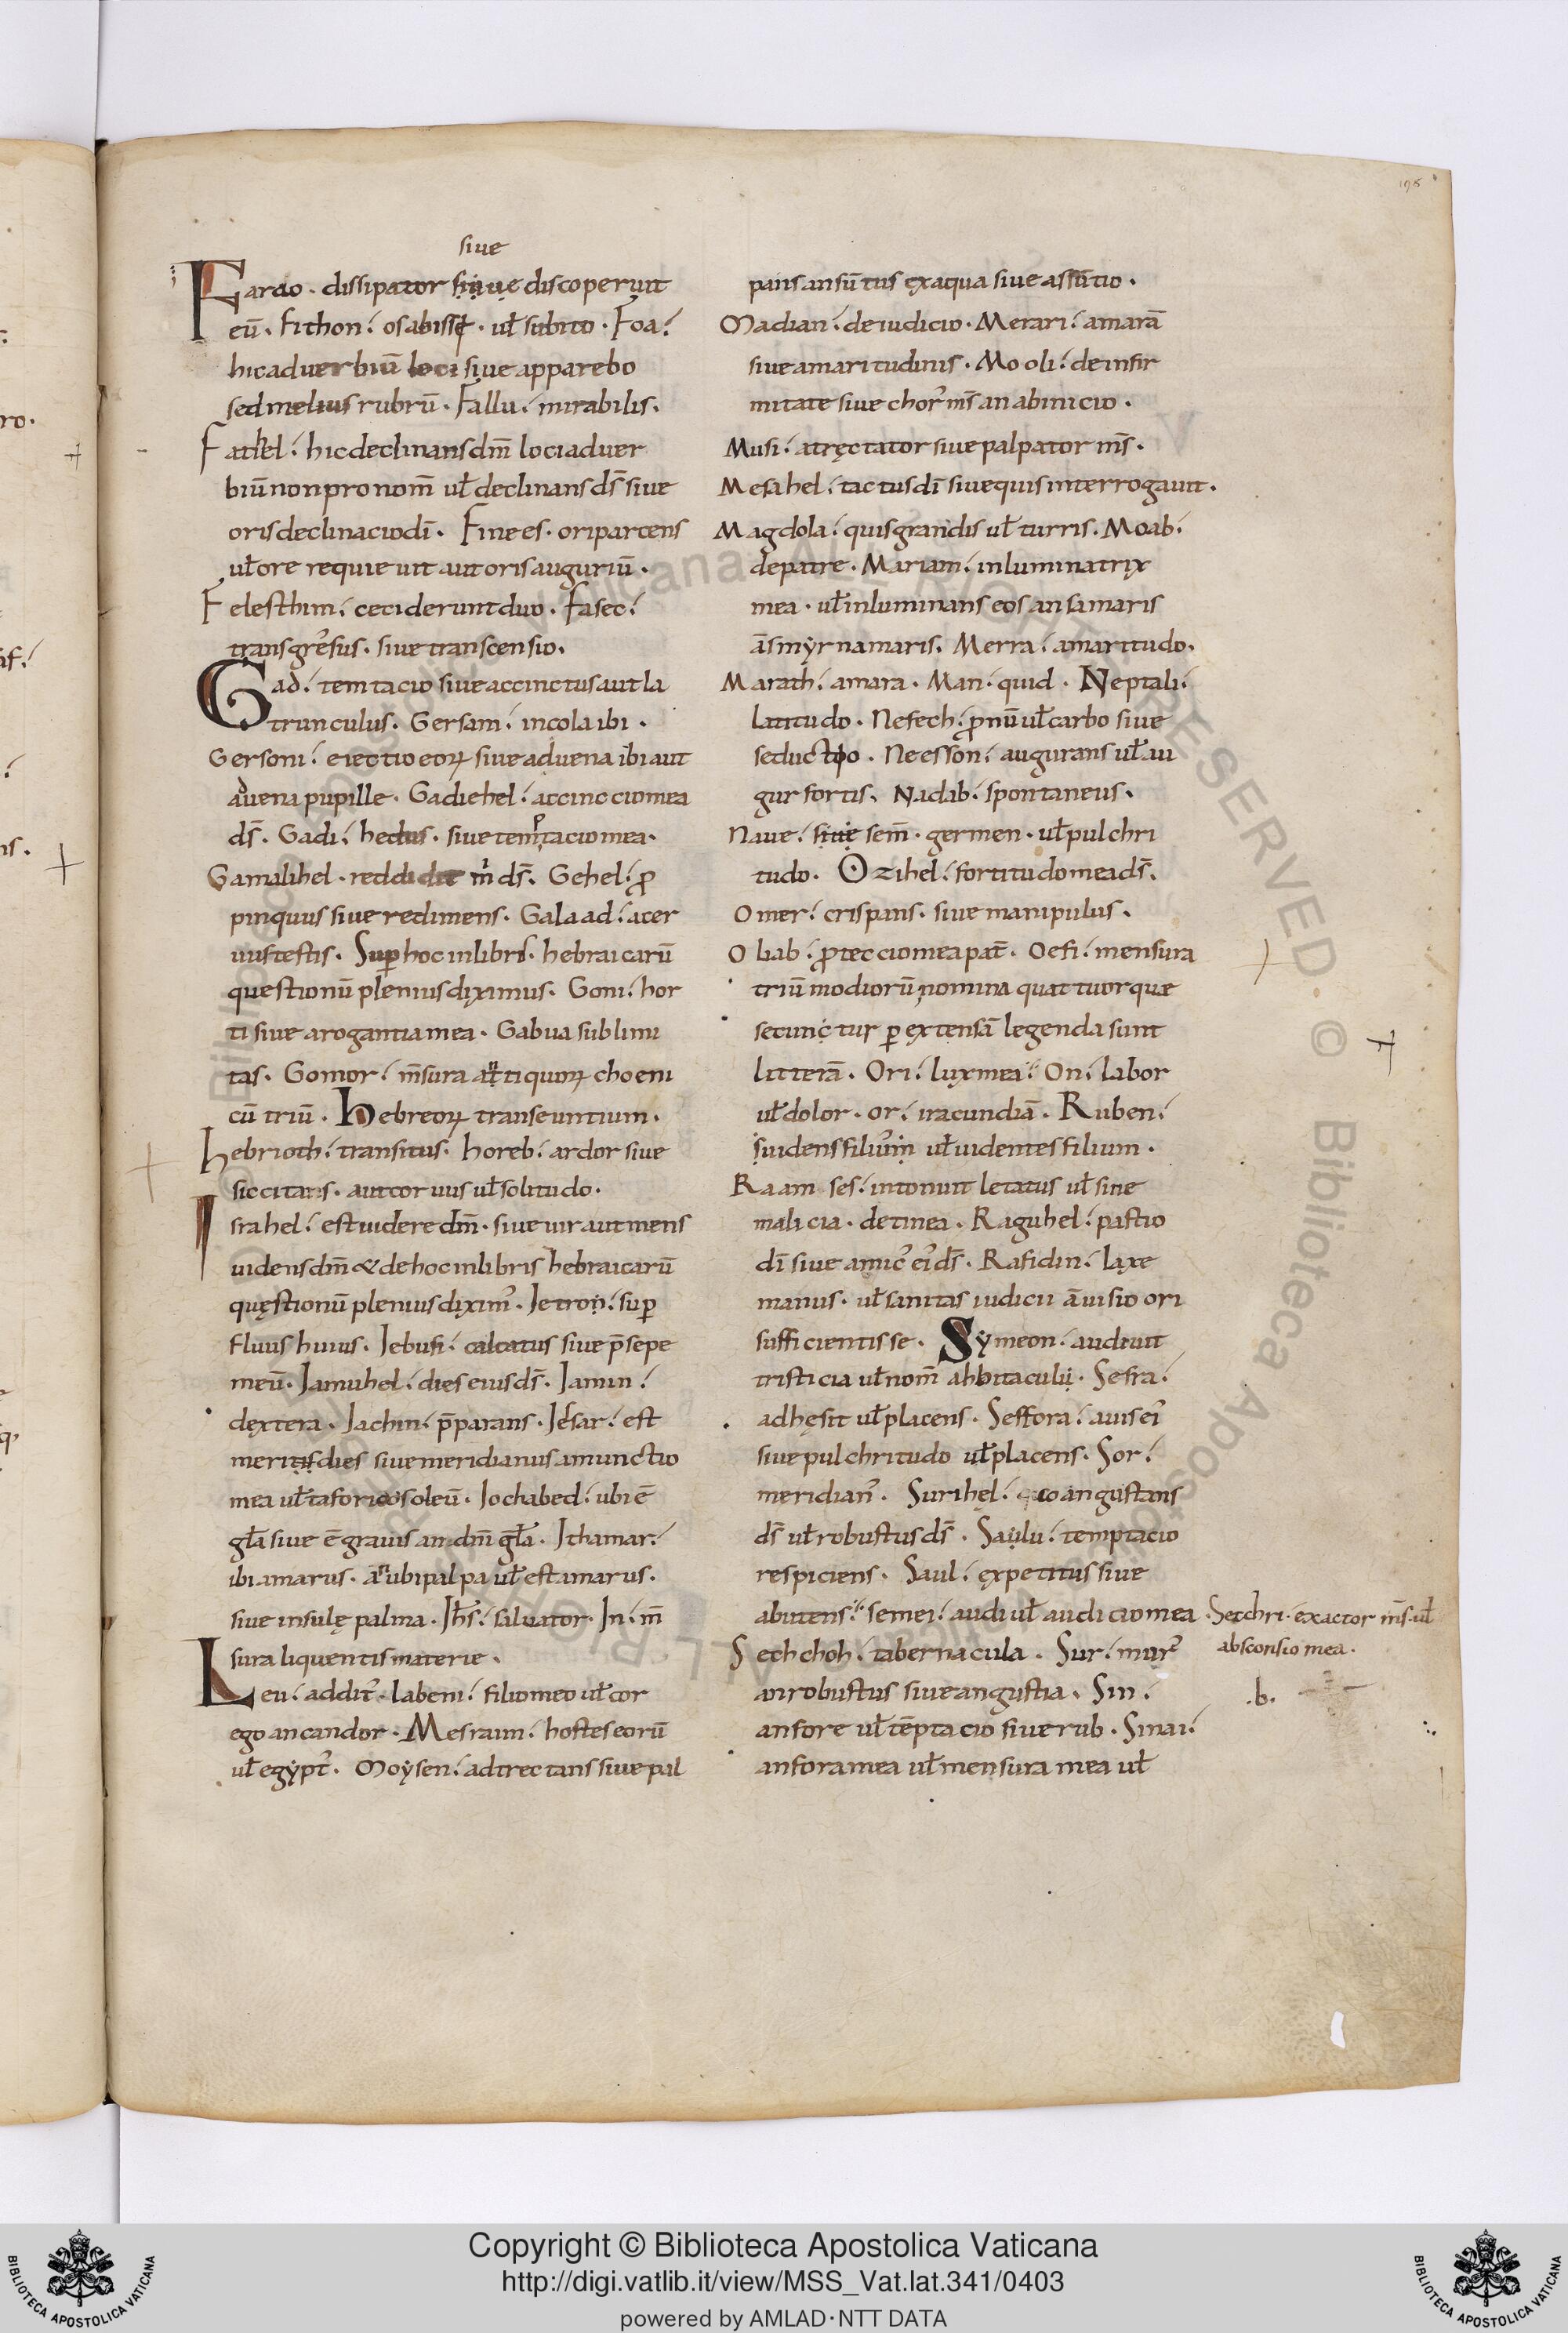 198
siue
Farao · dissipator siue discoperuit
eū · Fithon · os abissi · uł subito · Foa ·
hic aduerbiū loci siue apparebo
sed melius rubrū · Fallu · mirabilis ·
Fathel · hic declinans dm̄ loci aduer
biū non pro nom̄ uł declinans ds̄ siue
oris declinacio dī · Finees · ori parcens
uł ore requieuit aut oris auguriū ·
Felesthim · ceciderunt duo · Fasec ·
transgressus · siue transcensio ·
Gad · temtacio siue accinctus aut la
trunculus · Gersam · incola ibi ·
Gersoni · eiectio eorꝝ siue aduena ibi aut
aduena pupille · Gadiehel · accinccio mea
ds̄ · Gadi · hedus · siue temptacio mea ·
Gamalihel · reddidit m ds̄ · Gehel · ꝓ
pinquus siue redimens · Galaad · acer
uus testis · Suꝑ hoc in libris · hebraicarū
questionū plenius diximus · Goni · hor
ti siue arogantia mea · Gabua sublimi
tas · Gomor · m̄sura attiquorꝝ choeni
cū triū · Hebreorꝝ transeuntium ·
hebrioth · transitus · horeb · ardor siue
siccitas · aut coruus uł solitudo ·
Israhel · est uidere dm̄ · siue uir aut mens
uidens dm̄ & de hoc in libris hebraicarū
questionū plenius diximꝰ · Ietron · suꝑ
fluus huius · Iebusi · calcatus siue p̄sepe
meū · Iamuhel · dies eius ds̄ · Iamin ·
dextera · Iachin · p̄parans · Iesar · est
meritis dies siue meridianus a munctio
mea uł taforicos oleū · Iochabed · ubi ē
gła siue ē grauis an dm̄ gła · Ithamar ·
ibi amarus · aut ubi palpa uł est amarus ·
siue insule palma · Ihs̄ · saluator · In · m̄
sura liquentis materie ·
Leui · additꝰ · labeni · filio meo uł cor
ego an candor · Mesraim · hostes eorū
uł egyptꝰ · Moysen · adtrectans siue pal
pans an sūtus ex aqua siue assūtio ·
Madian · de iudicio · Merari · amarā
siue amaritudinis · Mooli · de infir
mitate siue chorꝰ ms̄ an ab inicio ·
Musi · atrectator siue palpator ms̄ ·
Mesahel · tactus dī siue quis interrogauit ·
Magdola · quis grandis uł turris · Moab ·
de patre · Mariam · inluminatrix
mea · uł inluminans eos an samaris
ā smyrna maris · Merra · amaritudo ·
Marath · amara · Man · quid · Neptali ·
latitudo · Nefech · ꝓnū uł carbo siue
seductio · Neesson · augurans uł au
gur fortis · Nadab · spontaneus ·
Naue · siue sem̄ · germen · uł pulchri
tudo · Ozihel · fortitudo mea ds̄ ·
Omer · crispans · siue manipulus ·
Oliab · ꝓteccio mea pat̄ · Oefi · mensura
triū modiorū nomina quattuor que
secuntur ꝑ extensā legenda sunt
litterā · Ori · lux mea · On · labor
uł dolor · or · iracundiā · Ruben ·
uidens filium uł uidentes filium ·
Raamses · intonuit letatus uł sine
malicia · de tinea · Raguhel · pastio
dī siue amicꝰ eiꝰ ds̄ · Rafidin · laxe
manus · uł sanitas iudicii ā uisio ori
sufficientis se · Symeon · audiuit
tristicia uł nom̄ ahbitaculū · Sefra ·
adhesit uł placens · Seffora · auis eiꝰ
siue pulchritudo uł placens · Sor ·
meridianꝰ · Surihel · coangustans
ds̄ uł robustus ds̄ · Saulu · temptacio
respiciens · Saul · expetitus siue
abutens · semei · audi uł audicio mea · Setchri · exactor ms̄ · uł
absconsio mea ·
Sechchoh · tabernacula · Sur · murꝰ
an robustus siue angustia · Sin · · b ·
anfore uł tēptacio siue rub · Sinai ·
anfora mea uł mensura mea uł
Copyright © Biblioteca Apostolica Vaticana
http://digi.vatlib.it/view/MSS_Vat.lat.341/0403
powered by AMLAD·NTT DATA
BIBLIOTECA APOSTOLICA VATICANA
BIBLIOTECA APOSTOLICA VATICANA